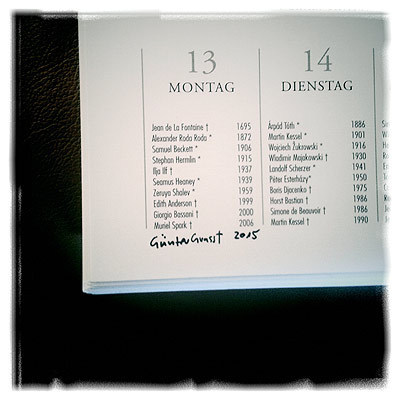 13
MONTAG
Jean de La Fontaine † 1695
Alexander Roda Roda * 1872
Samuel Beckett * 1906
Stephan Hermlin * 1915
Ilja Ilf † 1937
Seamus Heaney * 1939
Zeruya Shalev * 1959
Edith Anderson † 1999
Giorgio Bassani † 2000
Muriel Spark † 2006
Günter Grass † 2015
14
DIENSTAG
Árpád Tóth * 1886
Martin Kessel * 1901
Wojciech Żukrowski * 1916
Wladimir Majakowski † 1930
Landolf Scherzer * 1941
Péter Esterházy* 1950
Boris Djacenko † 1975
Horst Bastian † 1986
Simone de Beauvoir † 1986
Martin Kessel † 1990